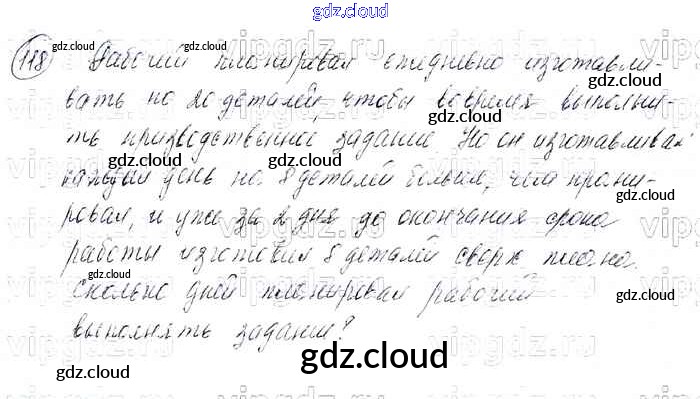 gdz.cloud
118 Рабочий планировал ежедневно изготавли-
вать по 20 деталей, чтобы вовремя выполни-
ть производственное задание. Но он изготавливал
каждый день на 8 деталей больше, чем плани-
ровал, и уже за 2 дня до окончания срока
работы изготовил 8 деталей сверх плана.
Сколько дней планировал рабочий
выполнять задание?
gdz.cloud
gdz.cloud
gdz.cloud
gdz.cloud
gdz.cloud
gdz.cloud
gdz.cloud
gdz.cloud
gdz.cloud
gdz.cloud
gdz.cloud